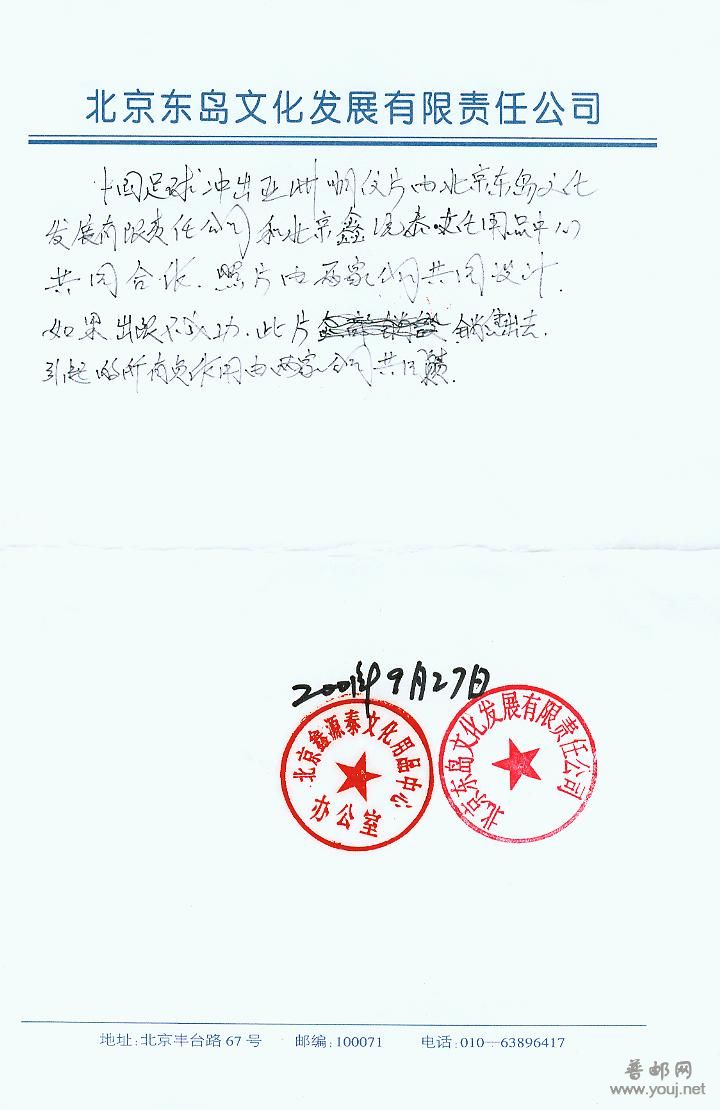 北京东岛文化发展有限责任公司
中国足球冲出亚洲明信片由北京东岛文化
发展有限责任公司和北京鑫源泰文化用品中心
共同合作.照片由两家公司共同设计.
如果出现不成功.此片 销售出去.
引起的所有负作用由两家公司共同
2001年9月27日
北京鑫源泰文化用品中心
办公室
北京东岛文化发展有限责任公司
地址:北京丰台路67号 邮编:100071 电话:010—63896417
普邮网
www.youj.net